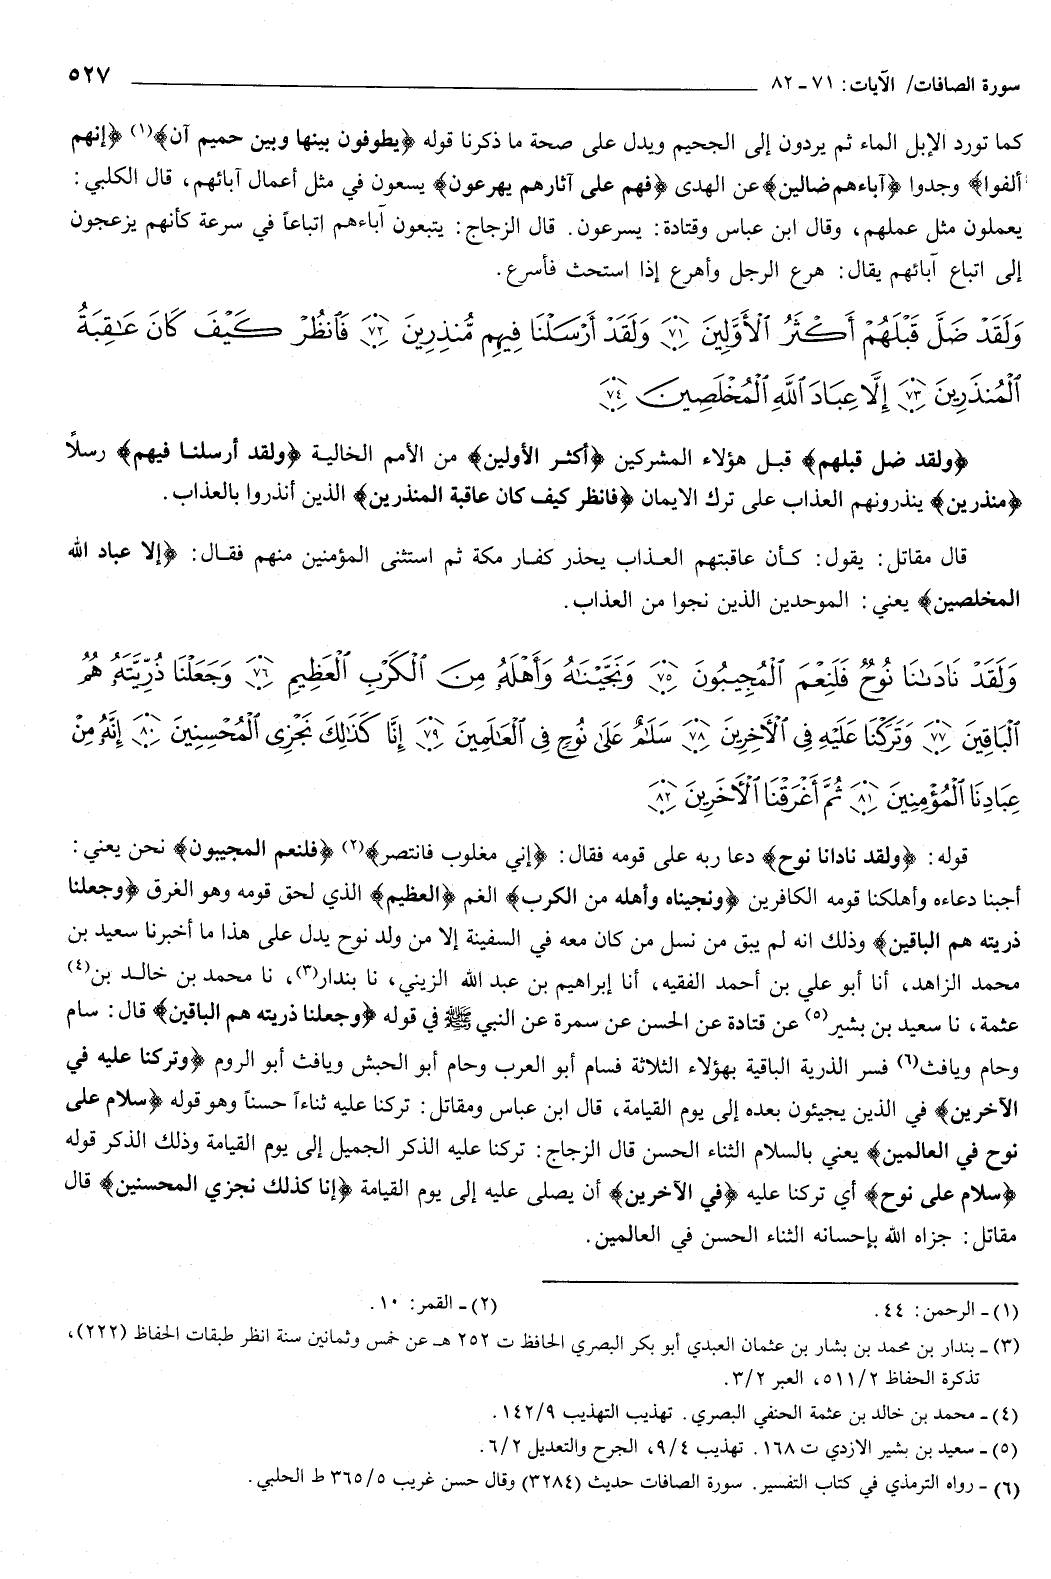 سورة الصافات/ الآيات: ٧١ - ٨٢
٥٢٧
كما تورد الإبل الماء ثم يردون إلى الجحيم ويدل على صحة ما ذكرنا قوله ﴿يطوفون بينها وبين حميم آن﴾(١) ﴿إنهم
ألفوا﴾ وجدوا ﴿آباءهم ضالين﴾ عن الهدى ﴿فهم على آثارهم يهرعون﴾ يسعون في مثل أعمال آبائهم، قال الكلبي:
يعملون مثل عملهم، وقال ابن عباس وقتادة: يسرعون. قال الزجاج: يتبعون آباءهم اتباعاً في سرعة كأنهم يزعجون
إلى اتباع آبائهم يقال: هرع الرجل وأهرع إذا استحث فأسرع.
وَلَقَدْ ضَلَّ قَبْلَهُمْ أَكْثَرُ ٱلْأَوَّلِينَ ٧١ وَلَقَدْ أَرْسَلْنَا فِيهِم مُّنذِرِينَ ٧٢ فَٱنظُرْ كَيْفَ كَانَ عَٰقِبَةُ
ٱلْمُنذَرِينَ ٧٣ إِلَّا عِبَادَ ٱللَّهِ ٱلْمُخْلَصِينَ ٧٤
﴿ولقد ضل قبلهم﴾ قبل هؤلاء المشركين ﴿أكثر الأولين﴾ من الأمم الخالية ﴿ولقد أرسلنا فيهم﴾ رسلاً
﴿منذرين﴾ ينذرونهم العذاب على ترك الايمان ﴿فانظر كيف كان عاقبة المنذرين﴾ الذين أنذروا بالعذاب.
قال مقاتل: يقول: كأن عاقبتهم العذاب يحذر كفار مكة ثم استثنى المؤمنين منهم فقال: ﴿إلا عباد الله
المخلصين﴾ يعني: الموحدين الذين نجوا من العذاب.
وَلَقَدْ نَادَىٰنَا نُوحٌ فَلَنِعْمَ ٱلْمُجِيبُونَ ٧٥ وَنَجَّيْنَٰهُ وَأَهْلَهُۥ مِنَ ٱلْكَرْبِ ٱلْعَظِيمِ ٧٦ وَجَعَلْنَا ذُرِّيَّتَهُۥ هُمُ
ٱلْبَاقِينَ ٧٧ وَتَرَكْنَا عَلَيْهِ فِى ٱلْأَخِرِينَ ٧٨ سَلَٰمٌ عَلَىٰ نُوحٍ فِى ٱلْعَٰلَمِينَ ٧٩ إِنَّا كَذَٰلِكَ نَجْزِى ٱلْمُحْسِنِينَ ٨٠ إِنَّهُۥ مِنْ
عِبَادِنَا ٱلْمُؤْمِنِينَ ٨١ ثُمَّ أَغْرَقْنَا ٱلْأَخَرِينَ ٨٢
قوله: ﴿ولقد نادانا نوح﴾ دعا ربه على قومه فقال: ﴿إني مغلوب فانتصر﴾(٢) ﴿فلنعم المجيبون﴾ نحن يعني:
أجبنا دعاءه وأهلكنا قومه الكافرين ﴿ونجيناه وأهله من الكرب﴾ الغم ﴿العظيم﴾ الذي لحق قومه وهو الغرق ﴿وجعلنا
ذريته هم الباقين﴾ وذلك انه لم يبق من نسل من كان معه في السفينة إلا من ولد نوح يدل على هذا ما أخبرنا سعيد بن
محمد الزاهد، أنا أبو علي بن أحمد الفقيه، أنا إبراهيم بن عبد الله الزيني، نا بندار(٣)، نا محمد بن خالد بن(٤)
عثمة، نا سعيد بن بشير(٥) عن قتادة عن الحسن عن سمرة عن النبي ﷺ في قوله ﴿وجعلنا ذريته هم الباقين﴾ قال: سام
وحام ويافث(٦) فسر الذرية الباقية بهؤلاء الثلاثة فسام أبو العرب وحام أبو الحبش ويافث أبو الروم ﴿وتركنا عليه في
الآخرين﴾ في الذين يجيئون بعده إلى يوم القيامة، قال ابن عباس ومقاتل: تركنا عليه ثناءاً حسناً وهو قوله ﴿سلام على
نوح في العالمين﴾ يعني بالسلام الثناء الحسن قال الزجاج: تركنا عليه الذكر الجميل إلى يوم القيامة وذلك الذكر قوله
﴿سلام على نوح﴾ أي تركنا عليه ﴿في الآخرين﴾ أن يصلى عليه إلى يوم القيامة ﴿إنا كذلك نجزي المحسنين﴾ قال
مقاتل: جزاه الله بإحسانه الثناء الحسن في العالمين.
(١) - الرحمن: ٤٤. (٢) - القمر: ١٠.
(٣) - بندار بن محمد بن بشار بن عثمان العبدي أبو بكر البصري الحافظ ت ٢٥٢ هـ عن خمس وثمانين سنة انظر طبقات الحفاظ (٢٢٢)،
تذكرة الحفاظ ٥١١/٢، العبر ٣/٢.
(٤) - محمد بن خالد بن عثمة الحنفي البصري. تهذيب التهذيب ١٤٢/٩.
(٥) - سعيد بن بشير الازدي ت ١٦٨. تهذيب ٩/٤، الجرح والتعديل ٦/٢.
(٦) - رواه الترمذي في كتاب التفسير. سورة الصافات حديث (٣٢٨٤) وقال حسن غريب ٣٦٥/٥ ط الحلبي.